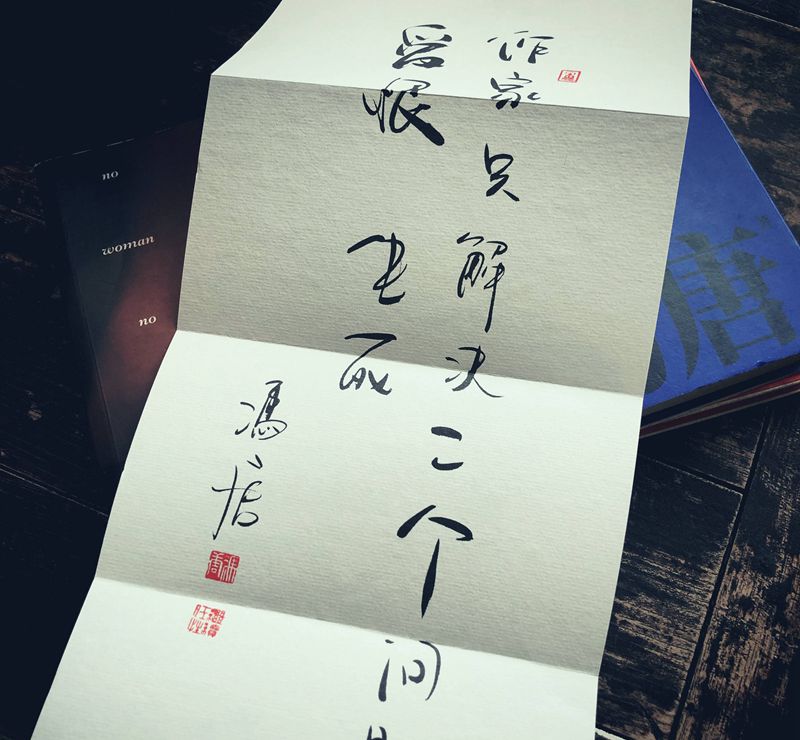 作家只解决二个问
爱恨 生死
冯唐
no
woman
no
唐